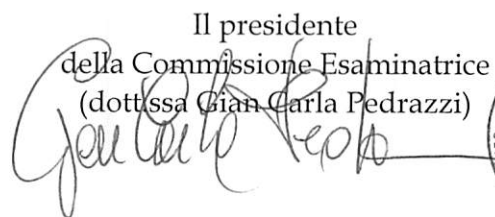 Il presidente
della Commissione Esaminatrice
(dott.ssa Gian Carla Pedrazzi)
Gian Carla Pedr